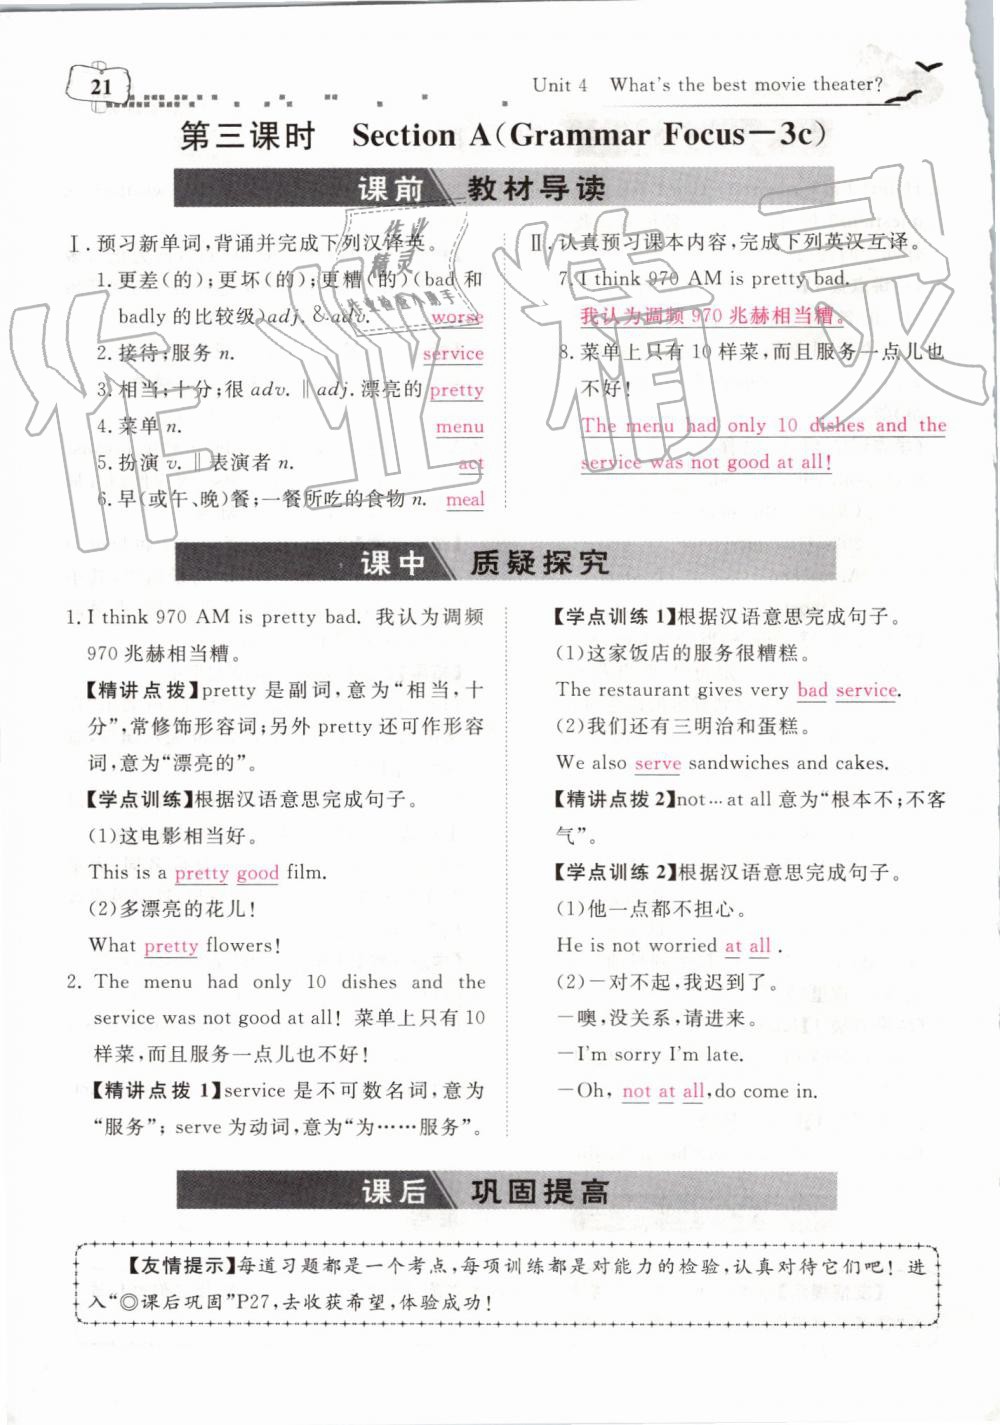 21
Unit 4　What's the best movie theater?
第三课时　Section A(Grammar Focus－3c)
课前　教材导读
Ⅰ.预习新单词,背诵并完成下列汉译英。
1.更差(的);更坏(的);更糟(的)(bad和
badly的比较级)adj. & adv. worse
2.接待;服务 n. service
3.相当;十分;很 adv. ‖adj.漂亮的 pretty
4.菜单 n. menu
5.扮演 v. ‖表演者 n. act
6.早(或午、晚)餐;一餐所吃的食物 n. meal
Ⅱ.认真预习课本内容,完成下列英汉互译。
7.I think 970 AM is pretty bad.
我认为调频 970 兆赫相当糟。
8.菜单上只有 10 样菜,而且服务一点儿也
不好!
The menu had only 10 dishes and the
service was not good at all!
课中　质疑探究
1.I think 970 AM is pretty bad. 我认为调频
970 兆赫相当糟。
【精讲点拨】pretty 是副词,意为“相当,十
分”,常修饰形容词;另外 pretty 还可作形容
词,意为“漂亮的”。
【学点训练】根据汉语意思完成句子。
(1)这电影相当好。
This is a pretty good film.
(2)多漂亮的花儿!
What pretty flowers!
2. The menu had only 10 dishes and the
service was not good at all! 菜单上只有 10
样菜,而且服务一点儿也不好!
【精讲点拨 1】service 是不可数名词,意为
“服务”; serve 为动词,意为“为……服务”。
【学点训练 1】根据汉语意思完成句子。
(1)这家饭店的服务很糟糕。
The restaurant gives very bad service.
(2)我们还有三明治和蛋糕。
We also serve sandwiches and cakes.
【精讲点拨 2】not…at all 意为“根本不;不客
气”。
【学点训练 2】根据汉语意思完成句子。
(1)他一点都不担心。
He is not worried at all .
(2)－对不起,我迟到了。
－噢,没关系,请进来。
－I'm sorry I'm late.
－Oh, not at all,do come in.
课后　巩固提高
【友情提示】每道习题都是一个考点,每项训练都是对能力的检验,认真对待它们吧! 进
入“◎课后巩固”P27,去收获希望,体验成功!
作业精灵
作业
精灵
作业检查小助手